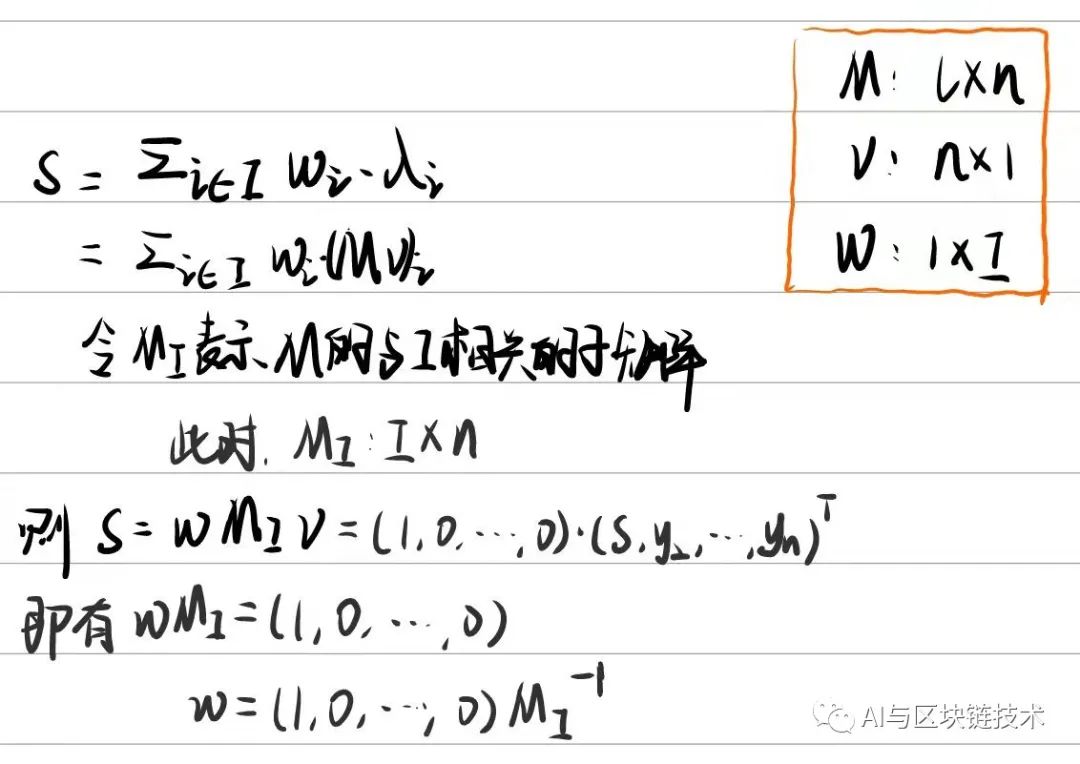 M: l×n
V: n×1
W: 1×I
S = Σ_{i∈I} w_i·λ_i
= Σ_{i∈I} w_i·(Mv)_i
令 M_I 表示 M 的与 I 相关的子矩阵
此时, M_I : I×n
则 S = w M_I v = (1,0,…,0)·(S,y_2,…,y_n)^T
即有 w M_I = (1,0,…,0)
w = (1,0,…,0) M_I^{-1}
AI与区块链技术